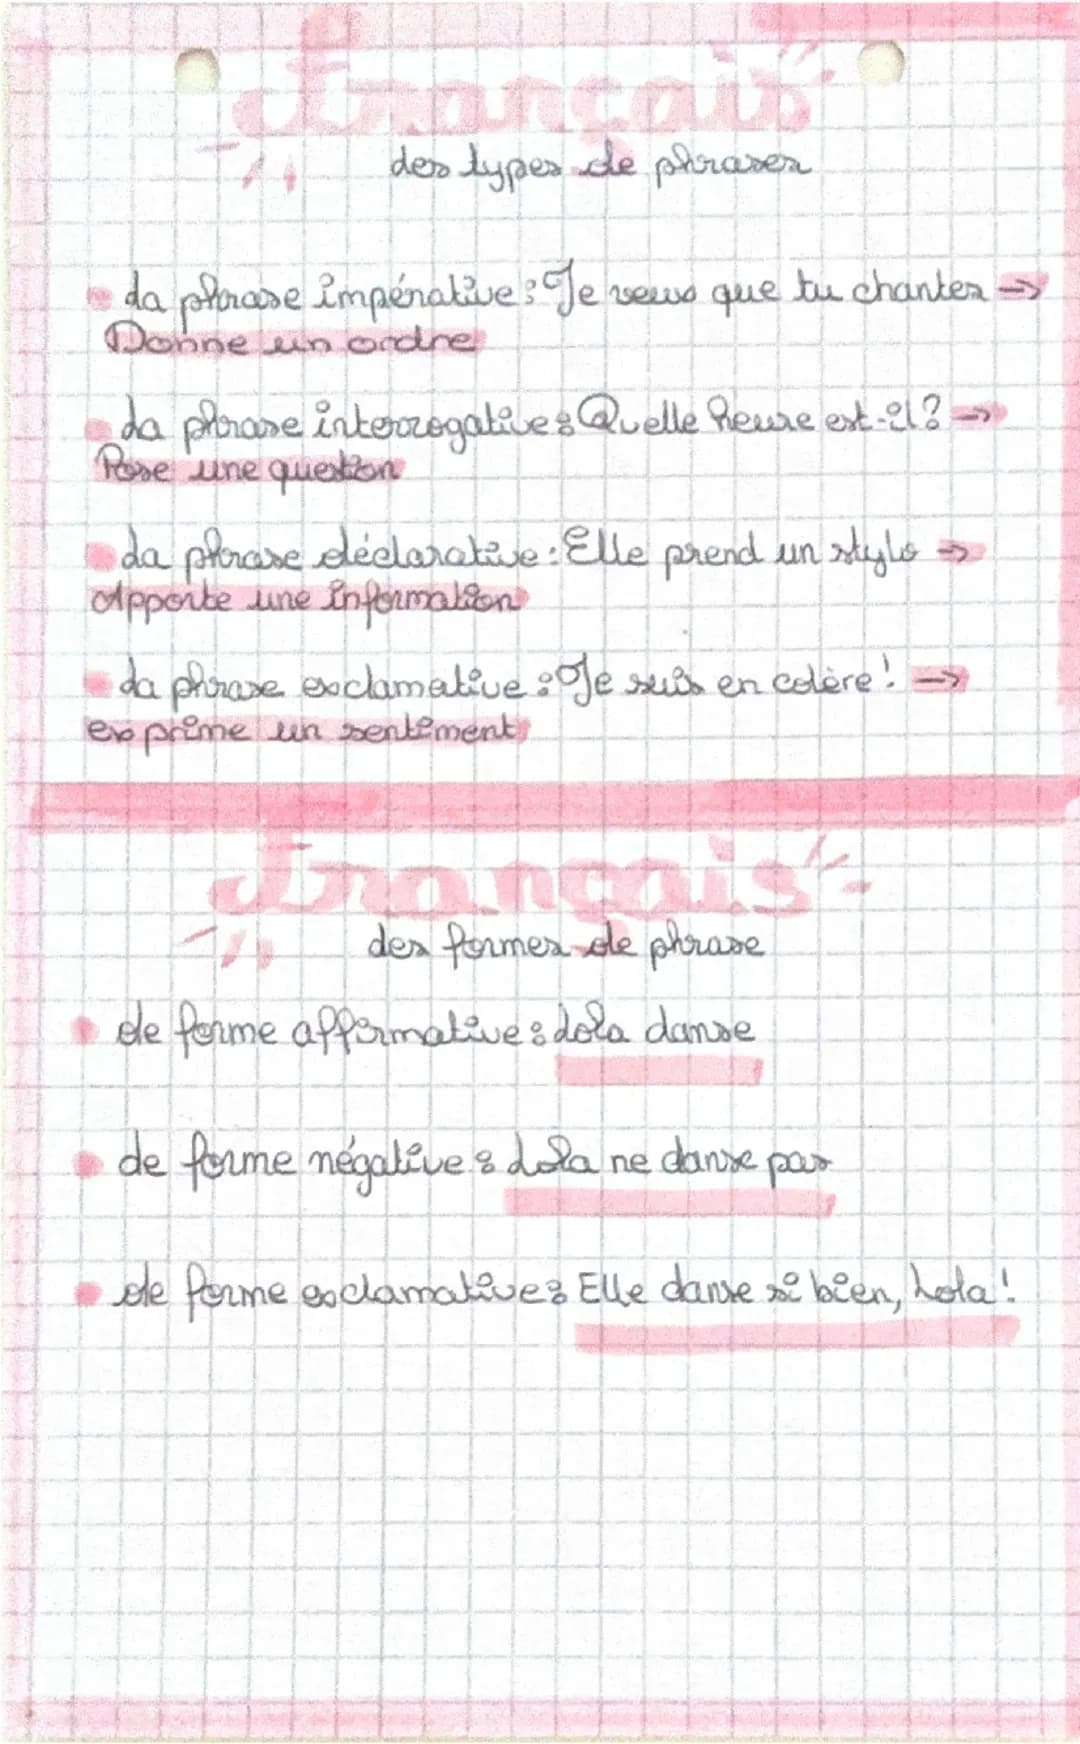 Français
Les types de phrases
La phrase impérative : Je veux que tu chantes →
Donne un ordre
La phrase interrogative : Quelle heure est-il ? →
Pose une question
La phrase déclarative : Elle prend un stylo →
Apporte une information
La phrase exclamative : Je suis en colère ! →
exprime un sentiment
Français
Les formes de phrase
de forme affirmative : Lola danse
de forme négative : Lola ne danse pas
de forme exclamative : Elle danse si bien, Lola !